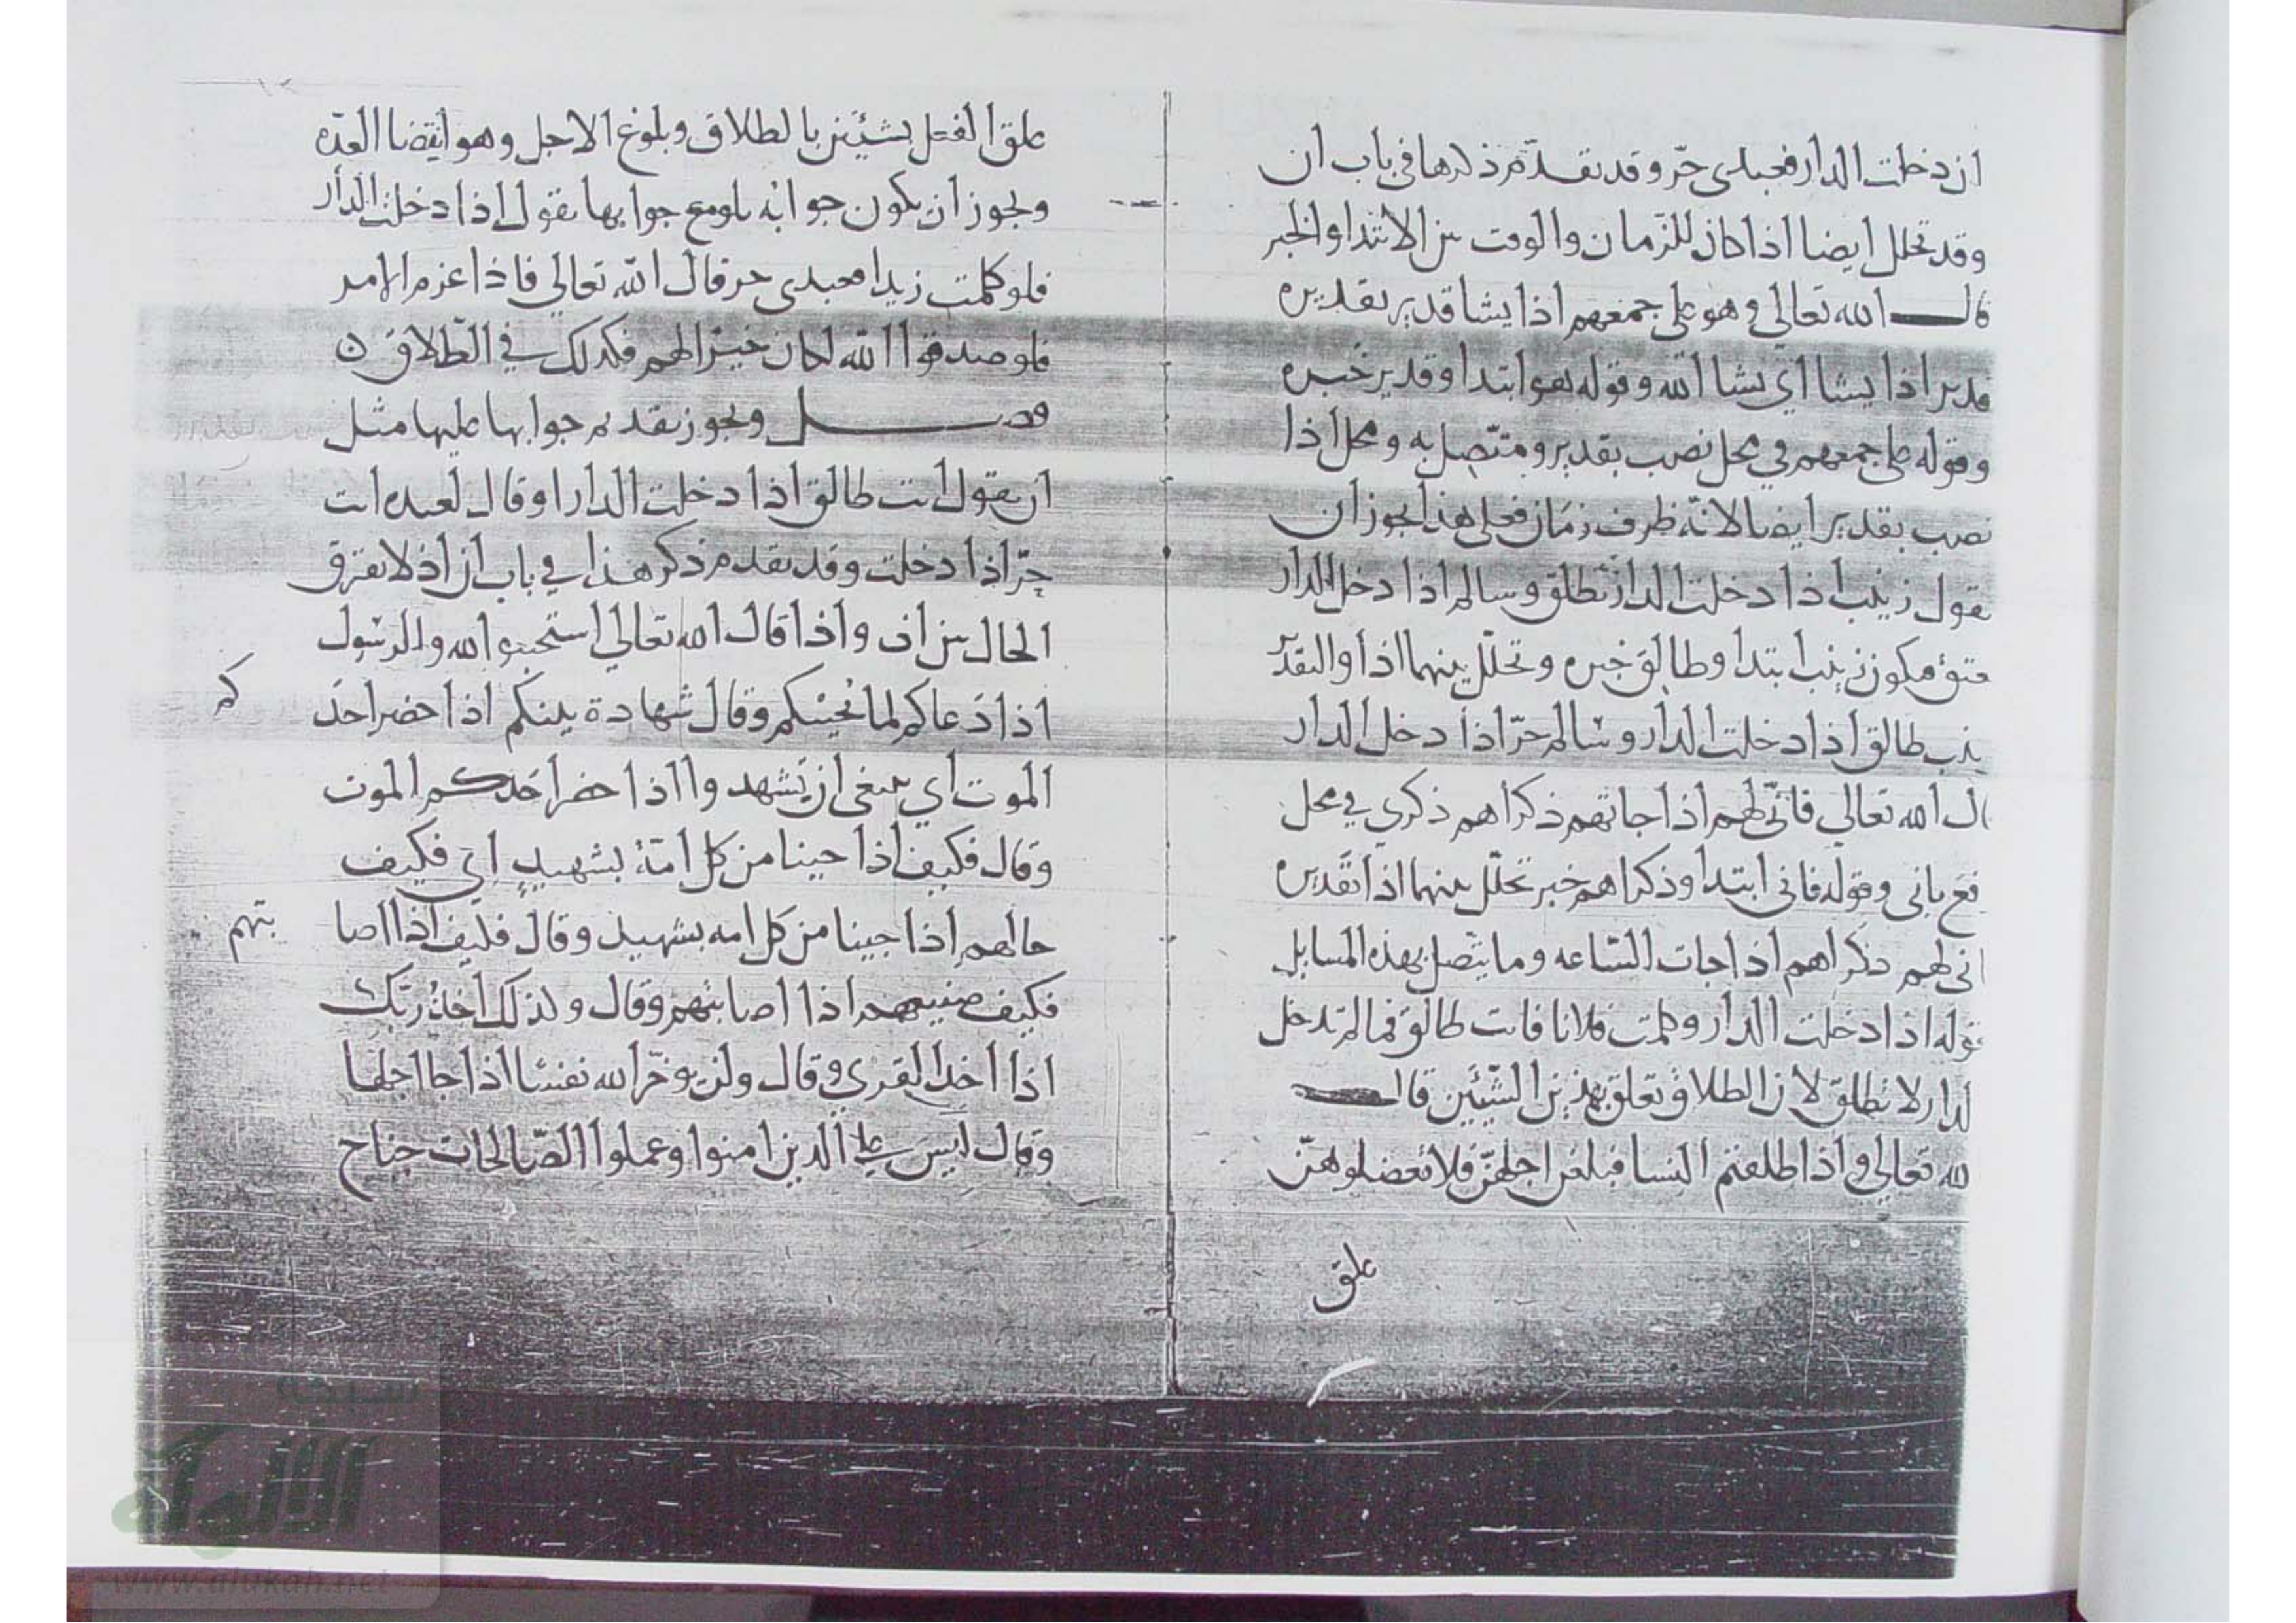 ان دخلت الدار فعبدى حرّ وقد تقدّم ذكرها فى باب ان
وقد تخلل ايضا اذا كان للزمان والوقت بين الابتدا والخبر
قال الله تعالي وهو على جمعهم اذا يشا قدير تقديره
قدير اذا يشا اي يشا الله وقوله هو ابتدا وقدير خبره
وقوله على جمعهم في محل نصب بقدير ومتّصل به ومحل اذا
نصب بقدير ايضا لانّه ظرف زمان فعلى هذا يجوز ان
تقول زينب اذا دخلت الدار تطلق وسالم اذا دخل الدار
عتق فيكون زينب ابتدا وطالق خبره وتخلّل بينهما اذا والتقدير
ينب طالق اذا دخلت الدار وسالم حرّ اذا دخل الدار
ال الله تعالي فانّى لهم اذا جاتهم ذكراهم ذكري في محل
فع بانى وقوله فانى ابتدا وذكراهم خبر تخلّل بينهما اذا تقديره
انى لهم ذكراهم اذا جات السّاعه وما يتّصل بهذه المسايل
قوله اذا دخلت الدار وكلمت فلانا فانت طالق فما لم تدخل
لدار لا تطلق لان الطلاق تعلق بهذين الشّيئين قال
لله تعالي واذا طلقتم النسا فبلغن اجلهنّ فلا تعضلوهنّ
علق
علق الفعل بشيئين بالطلاق وبلوغ الاجل وهو انقضا العدّه
ويجوز ان يكون جوابه بلو مع جوابها تقول اذا دخلت الدار
فلو كلمت زيدا فعبدى حر قال الله تعالي فاذا عزم الامر
فلو صدقوا الله لكان خيرا لهم فكذلك في الطّلاق ن
فصل ويجوز تقديم جوابها عليها مثل
ان تقول انت طالق اذا دخلت الدار او قال لعبده انت
حرّ اذا دخلت وقد تقدم ذكر هذا في باب ان اذ لا تفرق
الحال بين ان واذا قال الله تعالي استجيبوا لله وللرسول
اذا دعاكم لما يحييكم وقال شهادة بينكم اذا حضر احد
كم
الموت اي ينبغى ان يشهدوا اذا حضر احدكم الموت
وقال فكيف اذا جينا من كل امة بشهيد اي فكيف
حالهم اذا جينا من كل امه بشهيد وقال فكيف اذا اصا
بتهم
فكيف صنيعهم اذا اصابتهم وقال وكذلك اخذ ربّك
اذا اخذ القرى وقال ولن يوخّر الله نفسا اذا جا اجلها
وقال ليس على الذين امنوا وعملوا الصّالحات جناح
شبكة
الألوكة
www.alukah.net